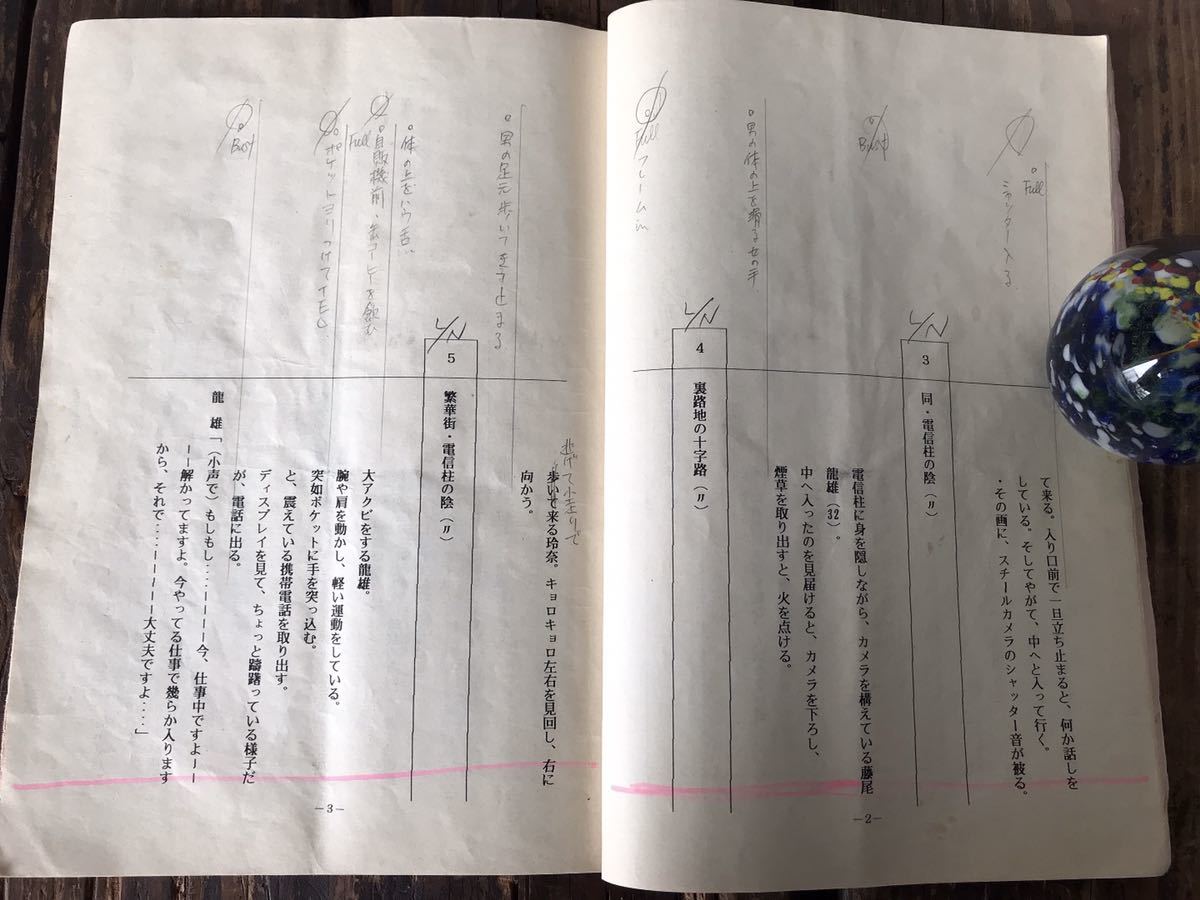 Full
シャッター入る
て来る。入り口前で一旦立ち止まると、何か話しを
している。そしてやがて、中へと入って行く。
・その画に、スチールカメラのシャッター音が被る。
L/N
3
同・電信柱の陰（〃）
Bust
電信柱に身を隠しながら、カメラを構えている藤尾
龍雄（32）。
中へ入ったのを見届けると、カメラを下ろし、
煙草を取り出すと、火を点ける。
男の体の上を滑る女の手
L/N
4
裏路地の十字路（〃）
Full フレームin
－2－
逃げて小走りで
歩いて来る玲奈。キョロキョロ左右を見回し、右に
向かう。
男の足元歩いてきて止まる
L/N
5
繁華街・電信柱の陰（〃）
体の上をはう舌
Full
自販機前、缶コーヒーを飲む
大アクビをする龍雄。
腕や肩を動かし、軽い運動をしている。
ポケット
突如ポケットに手を突っ込む。
と、震えている携帯電話を取り出す。
ディスプレイを見て、ちょっと躊躇っている様子だ
が、電話に出る。
Bust
龍　雄「（小声で）もしもし‥‥ーーーー今、仕事中ですよーー
ーー解かってますよ。今やってる仕事で幾らか入ります
から、それで‥‥ーーーーー大丈夫ですよ‥‥」
－3－